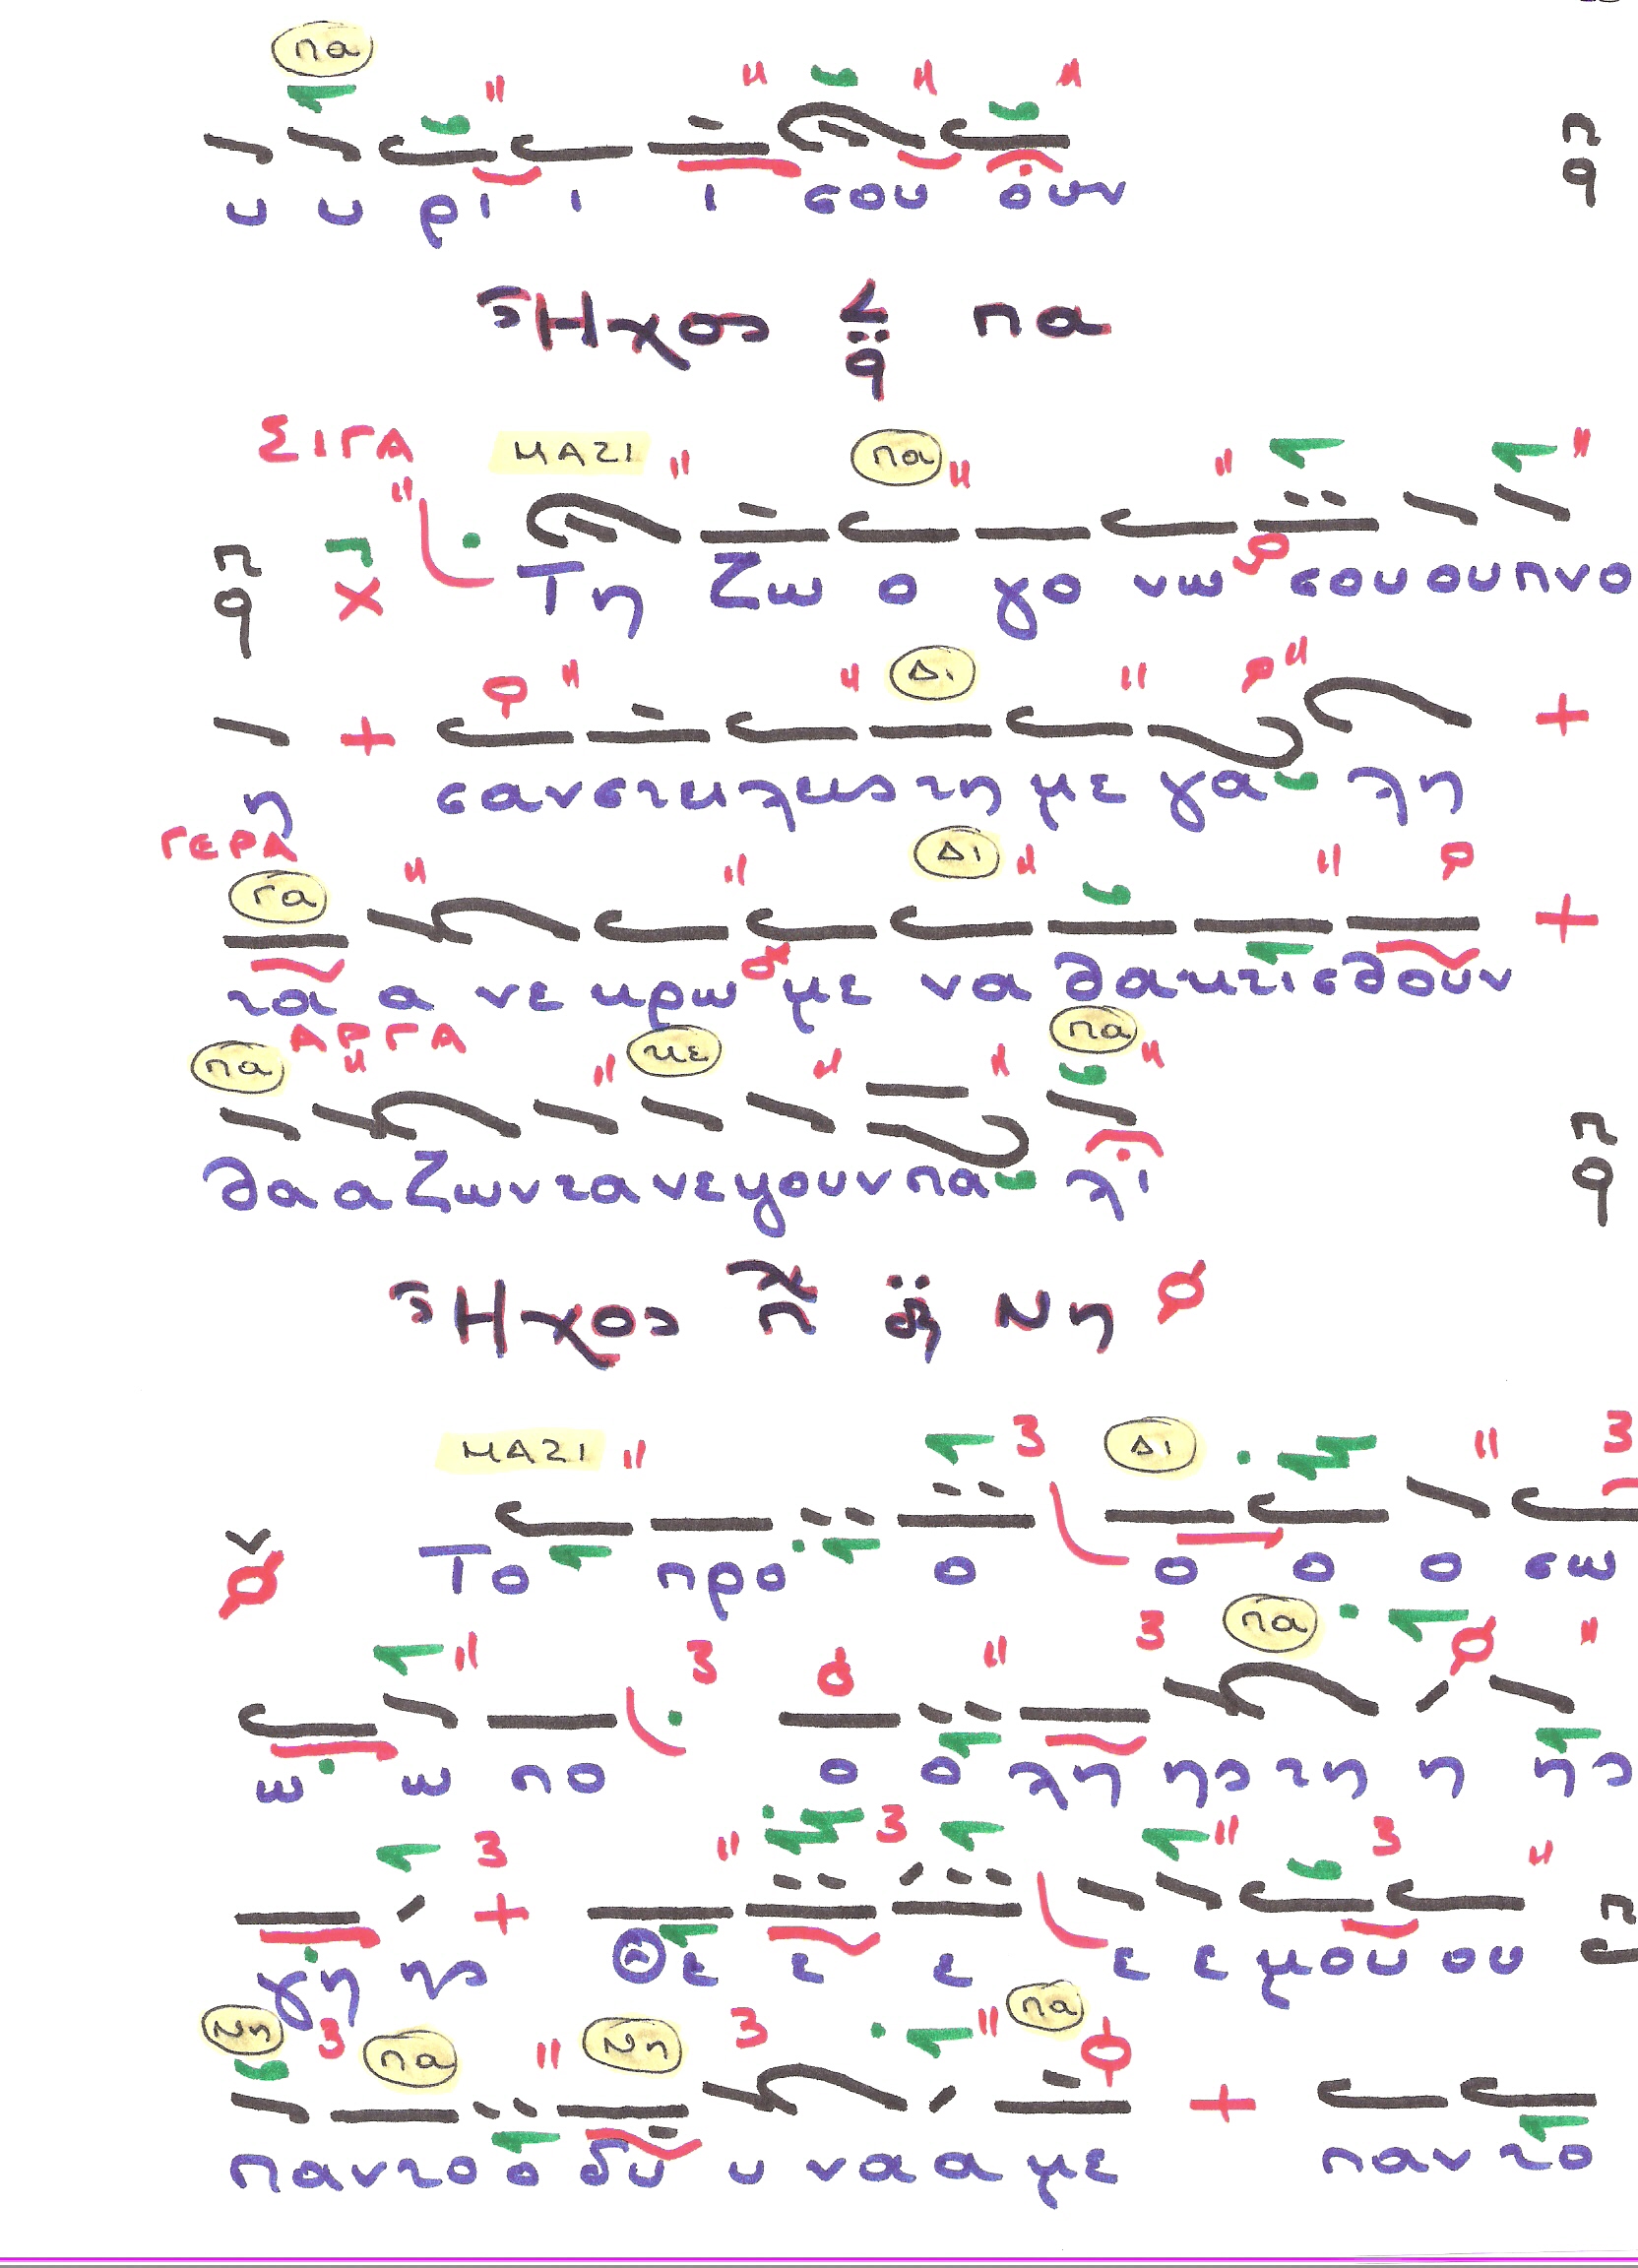 πα
υ υ ρι ι ι σου ουν
Ἦχος πα
ΣΙΓΑ ΜΑΖΙ πα
Τη ζω ο γο νω σου ου πνο
Δι
η σαν στειλεις τη με γα λη
ΓΕΡΑ
Γα Δι
τα α νε κρω με να θα κτισθουν
ΑΡΓΑ
πα κε πα
θα α ζων τα νε ψουν πα λι
Ἦχος Νη
ΜΑΖΙ Δι
Το προ ο ο ο ο σω
πα
ω ω πο ο ο λη ης τη η ης
γη ης Θε ε ε ε ε μου ου
Νη πα Νη πα
παν το ο δυ υ να α με παν το